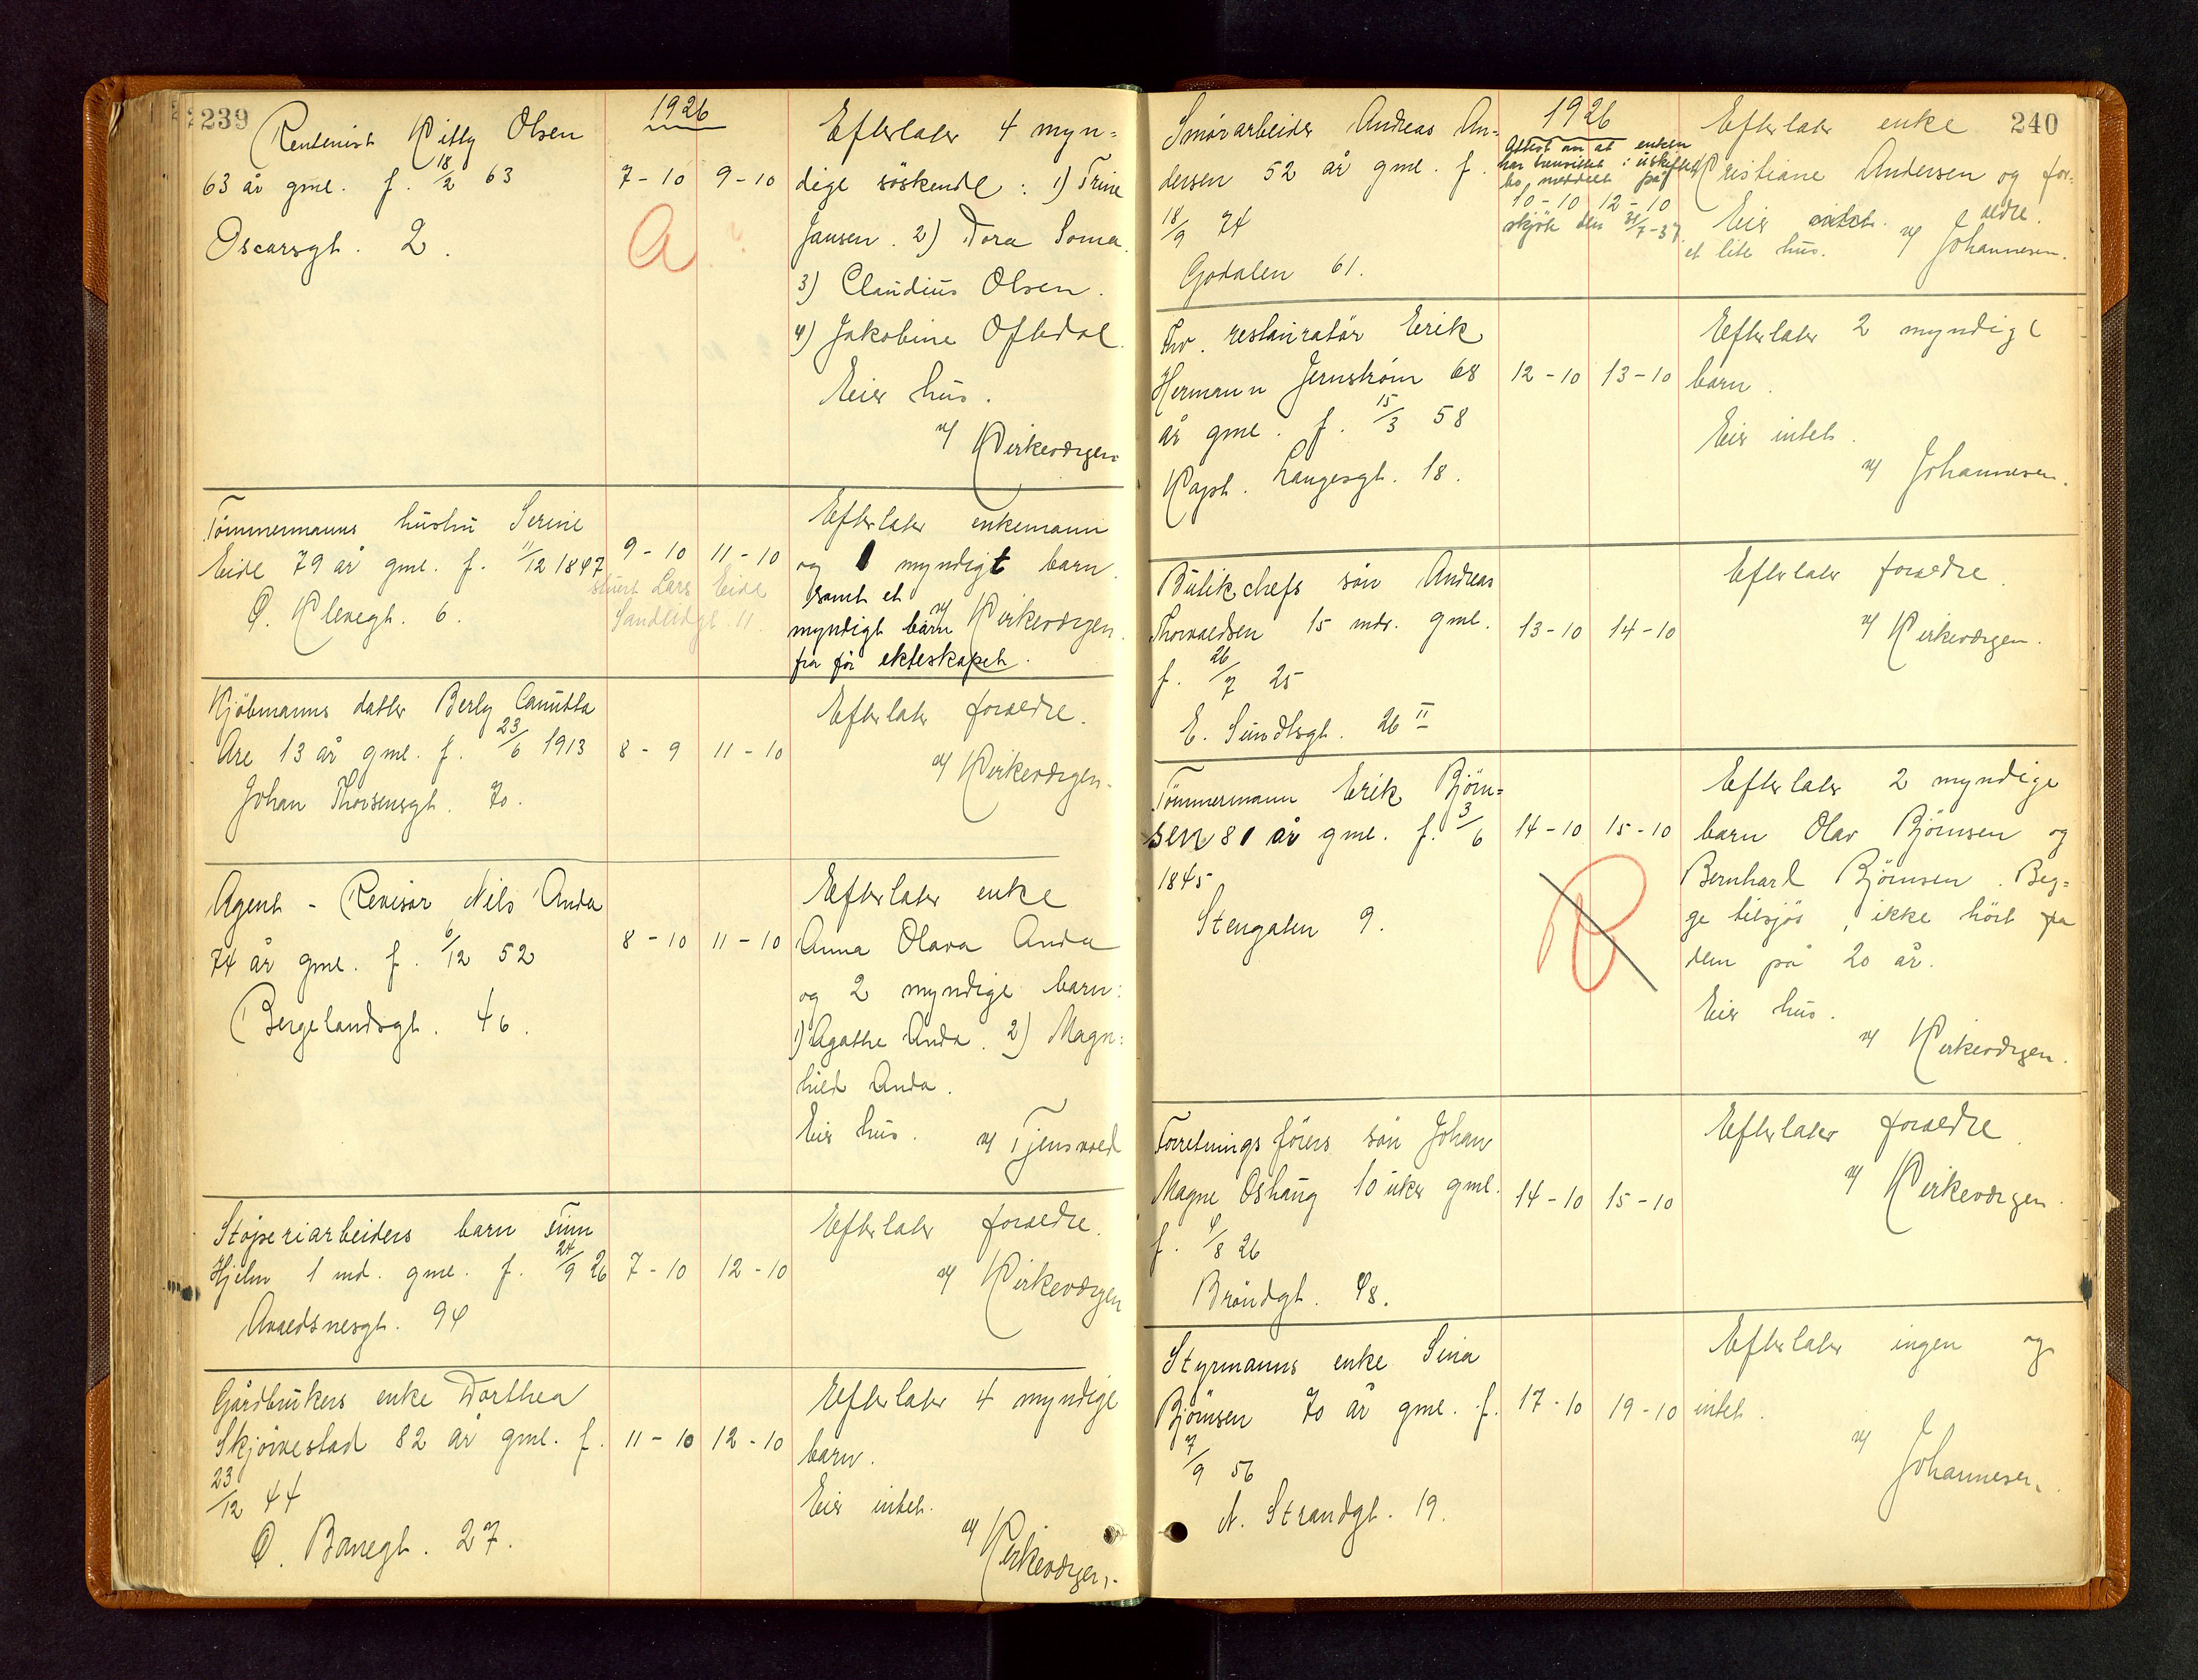 239
1926
Rentenist Kitty Olsen
63 år gml. f. 18/2 63
Oscarsgt. 2.
7-10 9-10
A
Efterlater 4 myn=
dige søskende: 1) Trine
Jansen. 2) Dora Soma.
3) Claudius Olsen.
4) Jakobine Oftedal.
Eier hus.
v/ Kirkeværgen
Tømmermanns hustru Serine
Eide 79 år gml. f. 11/12 1847
Ø. Klevegt. 6.
9-10 11-10
Lars Eide
Sandeidgt. 11.
Efterlater enkemann
og 1 myndigt barn.
samt et
myndigt barn v/ Kirkeværgen.
fra før ekteskapet.
Kjøbmanns datter Berly Canutta
Are 13 år gml. f. 23/6 1913
Johan Thorsensgt. 70.
8-9 11-10
Efterlater foreldre.
v/ Kirkeværgen.
Agent - Revisor Nils Anda
74 år gml. f. 6/12 52
Bergelandsgt. 46.
8-10 11-10
Efterlater enke
Anna Olava Anda
og 2 myndige barn:
1) Agathe Anda. 2) Magn=
hild Anda.
Eier hus. v/ Tjensvold
Støperiarbeiders barn Finn
Hjelm 1 md. gml. f. 24/9 26
Avaldsnesgt. 94
7-10 12-10
Efterlater foreldre.
v/ Kirkeværgen
Gårdbrukers enke Dorthea
Skjørestad 82 år gml. f.
23/12 44
Ø. Banegt. 27.
11-10 12-10
Efterlater 4 myndige
barn.
Eier intet.
v/ Kirkeværgen.
240
1926
Smørarbeider Andreas An=
dersen 52 år gml. f.
18/9 74
Godalen 61.
Attest om at enken
har hensittet i uskiftet
bo, meddelt på
10-10 12-10
skjøte den 31/7-37.
Efterlater enke
Kristiane Andersen og for=
eldre.
Eier intet. v/ Johannesen.
et lite hus.
Fhv. restauratør Erik
Hermann Jernstrøm 68
år gml. f. 15/3 58
Kapt. Langesgt. 18.
12-10 13-10
Efterlater 2 myndige
barn.
Eier intet.
v/ Johannesen.
Butikchefs søn Andreas
Thorvaldsen 15 mdr. gml.
f. 26/7 25
E. Sundtsgt. 26 II
13-10 14-10
Efterlater foreldre.
v/ Kirkeværgen.
Tømmermann Erik Bjørn=
sen 81 år gml. f. 3/6
1845
Stengaten 9.
14-10 15-10
Efterlater 2 myndige
barn Olav Bjørnsen og
Bernhard Bjørnsen. Beg=
ge tilsjøs, ikke hørt fra
dem på 20 år.
Eier hus.
v/ Kirkeværgen.
Forretningsførers søn Johan
Magne Oshaug 10 uker gml.
f. 4/8 26
Brøndgt. 48.
14-10 15-10
Efterlater foreldre.
v/ Kirkeværgen.
Styrmanns enke Sina
Bjørnsen 70 år gml. f.
7/9 56
N. Strandgt. 19.
17-10 19-10
Efterlater ingen og
intet.
v/ Johannesen.